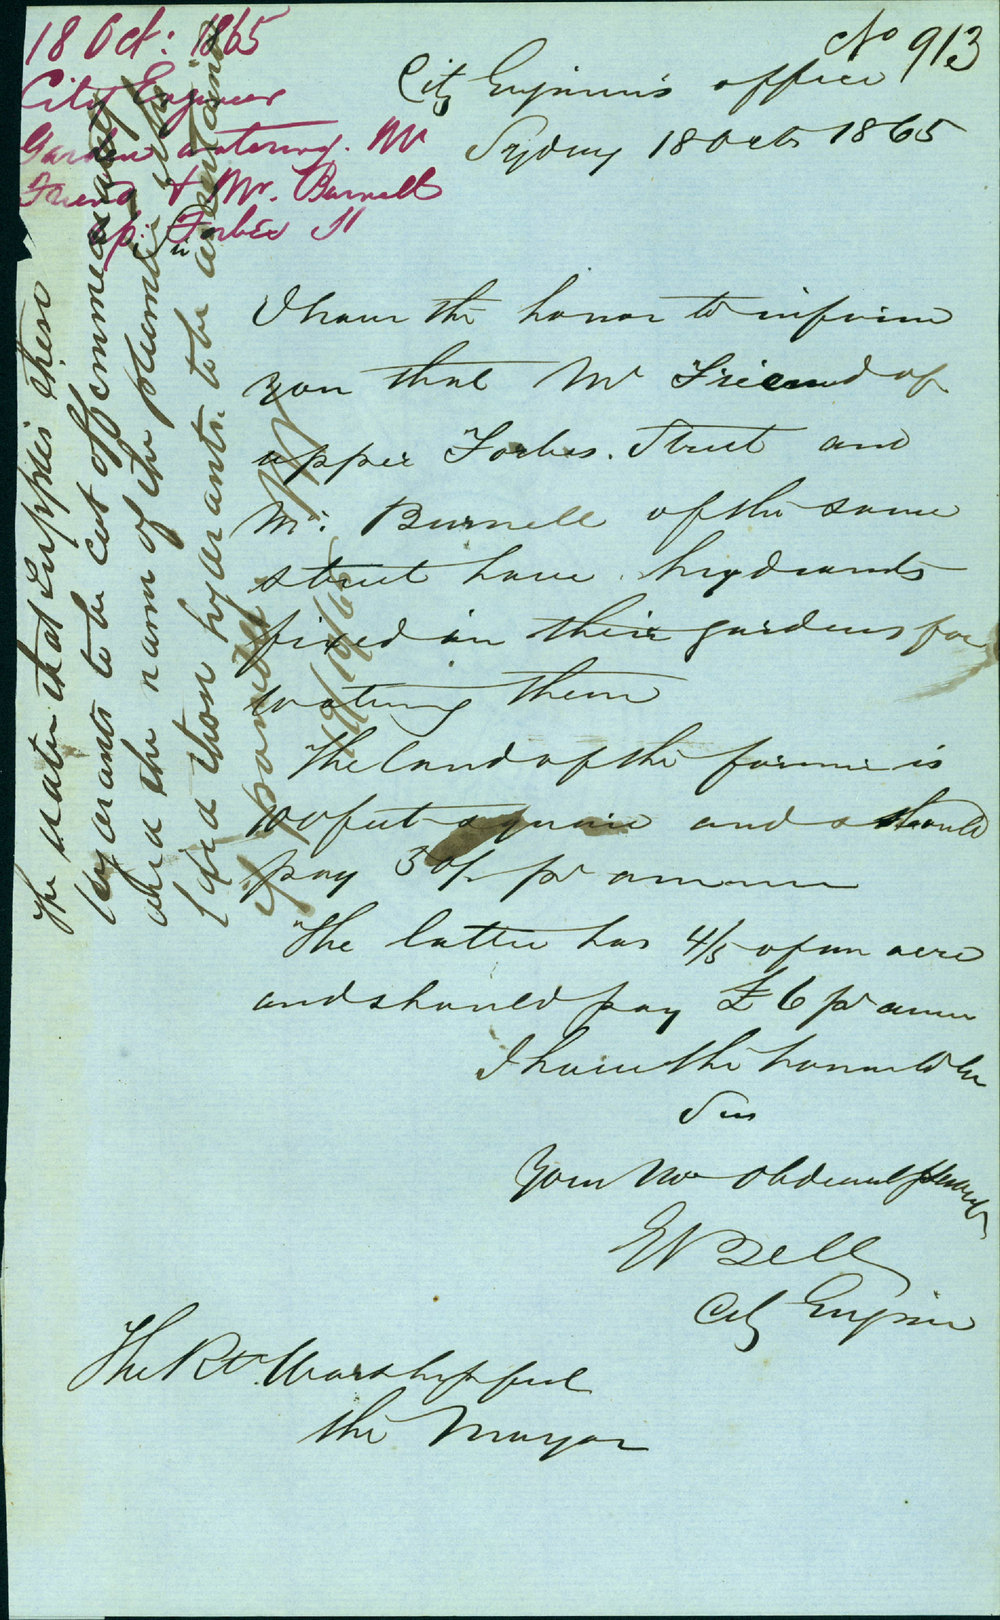 No 913
18 Oct: 1865
City Engineer
Garden watering. Mr
Friend & Mr. Burnell
up: Forbes St
City Engineer's office
Sydney 18 Octr 1865
Sir
I have the honor to inform
you that Mr Friend of
upper Forbes. Street and
Mr: Burnell of the same
street have hydrants
fixed in their gardens for
watering them
The land of the former is
100 feet square and should
pay 30/- pr annum
The latter has 4/5 of an acre
and should pay £6 pr annm
I have the honor to be
Sir
Your Mo Obedient Servant
E Bell
City Engineer
The Rt. Worshipful
the Mayor
The water that supplies these
hydrants to be cut off immediately
and the name of the plumber who
fixed those hydrants to be ascertained
if possible
18/10/65